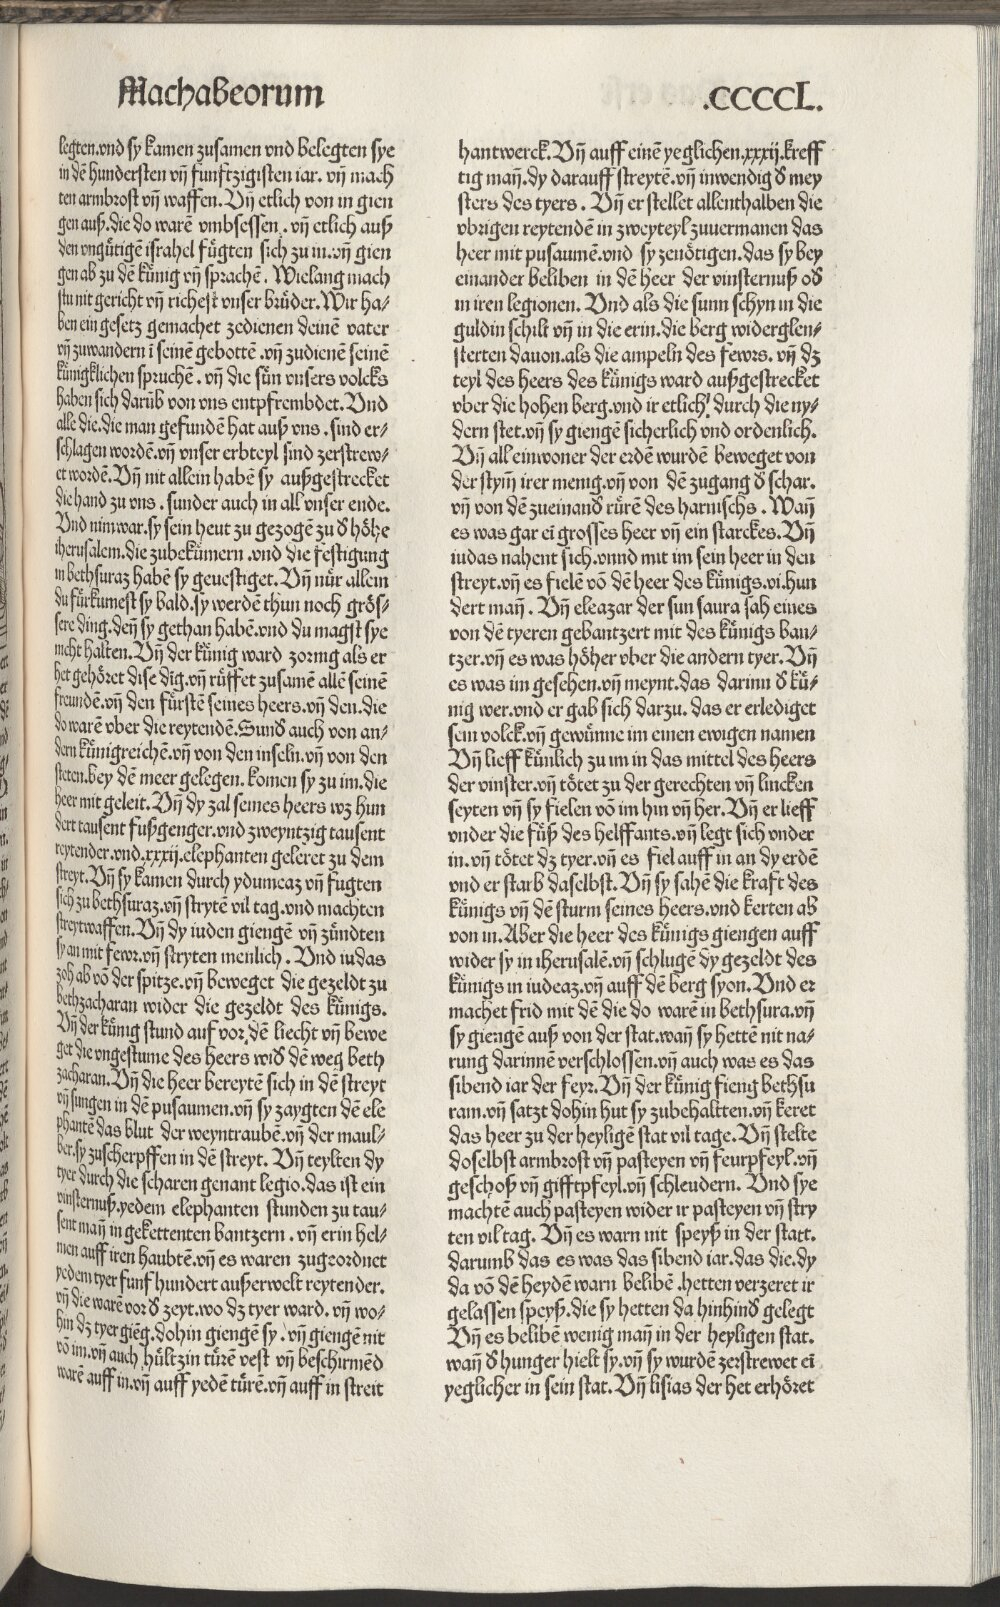 Machabeorum
.CCCCL.
legten.vnd sy kamen zusamen vnd belegten sye
in dē hundersten vn̄ funftzigisten iar. vn̄ mach
ten armbrost vn̄ waffen. Vn̄ etlich von in gien
gen auß.die do warē vmbsessen. vn̄ etlich auß
den vngütigē israhel fügten sich zu in.vn̄ gien
gen ab zu dē künig vn̄ sprachē. Wielang mach
stu nit gericht vn̄ richest vnser brüder.Wir ha-
ben ein gesetz gemachet zedienen deinē vater
vn̄ zuwandern ī seinē gebottē.vn̄ zudienē seinē
künigklichen spruchē. vn̄ die sün vnsers volcks
haben sich darūb von vns entpfrembdet. Vnd
alle die.die man gefundē hat auß vns. sind er-
schlagen wordē.vn̄ vnser erbteyl sind zerstrew-
et wordē. Vn̄ nit allein habē sy außgestrecket
die hand zu vns. sunder auch in all vnser ende.
Vnd nimwar.sy sein heut zu gezogē zu d̕ höhe
iherusalem.die zubekümern.vnd die festigung
in bethsuraz habē sy geuestiget. Vn̄ nür allein
du fürkumest sy bald.sy werdē thun noch grös-
sere ding.den̄ sy gethan habē.vnd du magst sye
nicht halten. Vn̄ der künig ward zornig als er
het gehöret dise dīg.vn̄ rüffet zusamē allē seinē
freundē.vn̄ den fürstē seines heers.vn̄ den.die
do warē vber die reytendē. Sund̕ auch von an-
dern künigreichē.vn̄ von den inseln.vn̄ von den
steten.bey dē meer gelegen. komen sy zu im.die
heer mit geleit. Vn̄ dy zal seines heers wz hun
dert tausent fußgenger.vnd zweyntzig tausent
reytender.vnd.xxxij.elephanten geleret zu dem
streyt. Vn̄ sy kamen durch ydumeaz vn̄ fugten
sich zu bethsuraz.vn̄ strytē vil tag.vnd machten
streytwaffen. Vn̄ dy iuden giengē vn̄ zündten
sy an mit fewr.vn̄ stryten menlich. Vnd iudas
zoh ab vō der spitze.vn̄ beweget die gezeldt zu
bethzacharan wider die gezeldt des künigs.
Vn̄ der künig stund auf vor dē liecht vn̄ bewe
get die vngestume des heers wid̕ dē weg beth
zacharan. Vn̄ die heer bereytē sich in dē streyt
vn̄ sungen in dē pusaumen.vn̄ sy zaygten dē ele
phantē das blut der weyntraubē.vn̄ der maul-
ber.sy zuscherpffen in dē streyt. Vn̄ teylten dy
tyer durch die scharen genant legio.das ist ein
vinsternuß.yedem elephanten stunden zu tau-
sent man̄ in gekettenten bantzern. vn̄ erin hel-
men auff iren haubtē.vn̄ es waren zugeordnet
yedem tyer funf hundert außerwelt reytender.
vn̄ die warē vor d̕ zeyt.wo dz tyer ward. vn̄ wo-
hin dz tyer giēg.dohin giengē sy. vn̄ giengē nit
vō im.vn̄ auch hültzin türē vest vn̄ beschirmēd
warē auff in.vn̄ auff yedē türē.vn̄ auff in streit
hantwerck. Vn̄ auff einē yeglichen.xxxij.kreff
tig man̄.dy darauff streytē.vn̄ inwendig d̕ mey
sters des tyers. Vn̄ er stellet allenthalben die
vbrigen reytendē in zweyteyl zuuermanen das
heer mit pusaumē.vnd sy zenötigen.das sy bey
einander beliben in dē heer der vinsternuß od̕
in iren legionen. Vnd als die sunn schyn in die
guldin schilt vn̄ in die erin.die berg widerglen-
sterten dauon.als die ampeln des fewrs. vn̄ dz
teyl des heers des künigs ward außgestrecket
vber die hohen berg.vnd ir etlich' durch die ny-
dern stet.vn̄ sy giengē sicherlich vnd ordenlich.
Vn̄ all einwoner der erdē wurdē beweget von
der stym̄ irer menig.vn̄ von dē zugang d̕ schar.
vn̄ von dē zueinand̕ rürē des harnischs. Wan̄
es was gar eī grosses heer vn̄ ein starckes. Vn̄
iudas nahent sich.vnnd mit im sein heer in den
streyt.vn̄ es fielē vō dē heer des künigs.vi.hun
dert man̄. Vn̄ eleazar der sun saura sah eines
von dē tyeren gebantzert mit des künigs ban-
tzer.vn̄ es was höher vber die andern tyer. Vn̄
es was im gesehen.vn̄ meynt.das darinn d̕ kü-
nig wer.vnd er gab sich darzu. das er erlediget
sein volck.vn̄ gewünne im einen ewigen namen
Vn̄ lieff künlich zu im in das mittel des heers
der vinster.vn̄ tötet zu der gerechten vn̄ lincken
seyten vn̄ sy fielen vō im hin vn̄ her. Vn̄ er lieff
vnder die füß des helffants.vn̄ legt sich vnder
in.vn̄ tötet dz tyer.vn̄ es fiel auff in an dy erdē
vnd er starb daselbst. Vn̄ sy sahē die kraft des
künigs vn̄ dē sturm seines heers.vnd kerten ab
von in. Aber die heer des künigs giengen auff
wider sy in iherusalē.vn̄ schlugē dy gezeldt des
künigs in iudeaz.vn̄ auff dē berg syon. Vnd er
machet frid mit dē die do warē in bethsura.vn̄
sy giengē auß von der stat.wan̄ sy hettē nit na-
rung darinnē verschlossen.vn̄ auch was es das
sibend iar der feyr. Vn̄ der künig fieng bethsu
ram.vn̄ satzt dohin hut sy zubehaltten.vn̄ keret
das heer zu der heyligē stat vil tage. Vn̄ stelte
doselbst armbrost vn̄ pasteyen vn̄ feurpfeyl.vn̄
geschoß vn̄ gifftpfeyl.vn̄ schleudern. Vnd sye
machtē auch pasteyen wider ir pasteyen vn̄ stry
ten vil tag. Vn̄ es warn nit speyß in der statt.
darumb das es was das sibend iar.das die.dy
da vō dē heydē warn belibē.hetten verzeret ir
gelassen speyß.die sy hetten da hinhind̕ gelegt
Vn̄ es belibē wenig man̄ in der heyligen stat.
wan̄ d̕ hunger hielt sy.vn̄ sy wurdē zerstrewet eī
yeglicher in sein stat. Vn̄ lisias der het erhöret